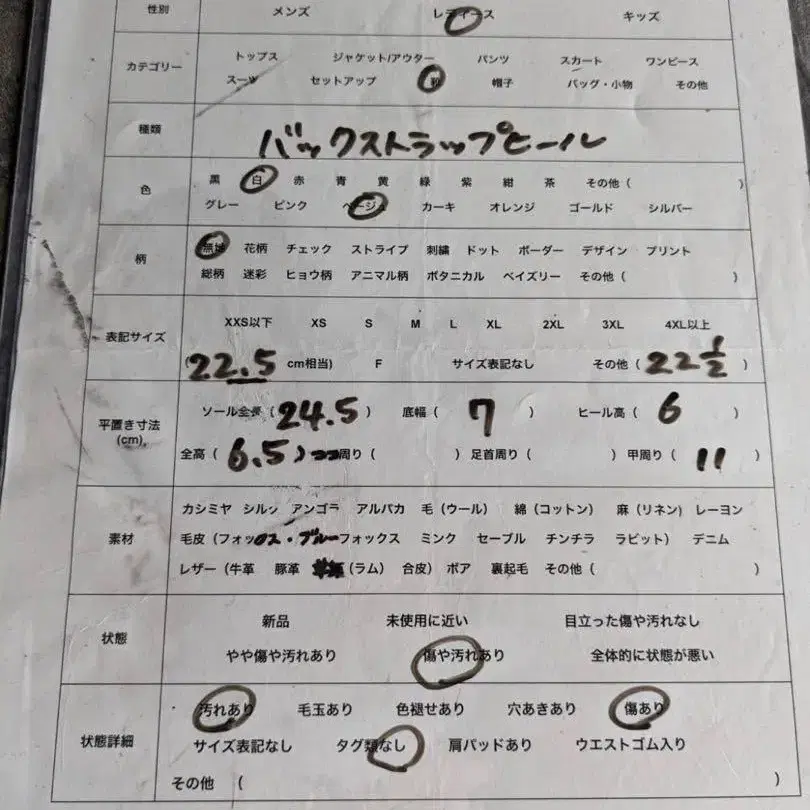 性別 メンズ レディース キッズ
カテゴリー
トップス ジャケット/アウター パンツ スカート ワンピース
スーツ セットアップ 靴 帽子 バッグ・小物 その他
種類 バックストラップヒール
色
黒 白 赤 青 黄 緑 紫 紺 茶 その他 ( )
グレー ピンク ベージュ カーキ オレンジ ゴールド シルバー
柄
無地 花柄 チェック ストライプ 刺繍 ドット ボーダー デザイン プリント
総柄 迷彩 ヒョウ柄 アニマル柄 ボタニカル ペイズリー その他 ( )
表記サイズ
XXS以下 XS S M L XL 2XL 3XL 4XL以上
22.5 cm相当) F サイズ表記なし その他 ( 22 1/2 )
平置き寸法
(cm)
ソール全長 ( 24.5 ) 底幅 ( 7 ) ヒール高 ( 6 )
全高 ( 6.5 ) 周り ( ) 足首周り ( ) 甲周り ( 11 )
素材
カシミヤ シルク アンゴラ アルパカ 毛 (ウール) 綿 (コットン) 麻 (リネン) レーヨン
毛皮 (フォックス・ブルーフォックス ミンク セーブル チンチラ ラビット) デニム
レザー (牛革 豚革 (ラム) 合皮) ボア 裏起毛 その他 ( )
状態
新品 未使用に近い 目立った傷や汚れなし
やや傷や汚れあり 傷や汚れあり 全体的に状態が悪い
状態詳細
汚れあり 毛玉あり 色褪せあり 穴あきあり 傷あり
サイズ表記なし タグ類なし 肩パッドあり ウエストゴム入り
その他 ( )